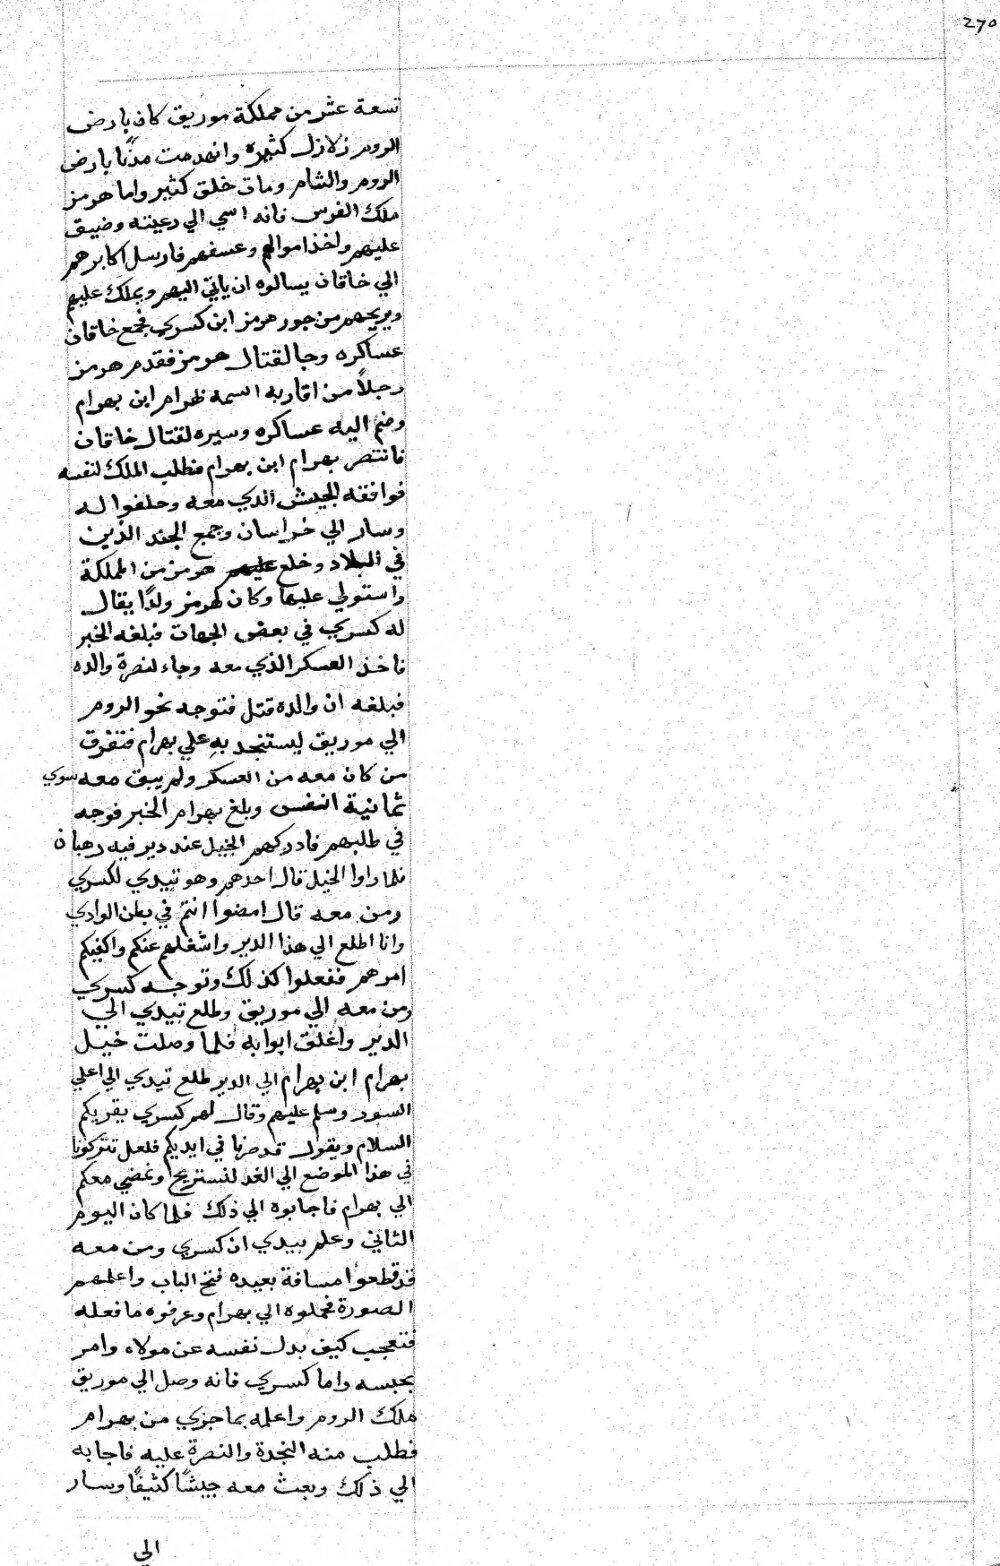 270
تسعة عشر من مملكة موريق كان بارض
الروم زلازل كثيره وانهدمت مدنًا بارض
الروم والشام ومات خلق كثير واما هرمز
ملك الفرس فانه اسي الي رعيته وضيق
عليهم واخذ اموالهم وعسفهم فارسل اكابرهم
الي خاقان يسالوه ان ياتي اليهم ويملك عليهم
ويريحهم من جور هرمز ابن كسري فجمع خاقان
عساكره وجا لقتال هرمز فقدم هرمز
رجلاً من اقاربه اسمه بهرام ابن بهرام
وضم اليه عساكره وسيره لقتال خاقان
فانتصر بهرام ابن بهرام فطلب الملك لنفسه
فوافقه الجيش الدي معه وحلفوا له
وسار الي خراسان وجمع الجند الذين
في البلاد وخلع عليهم هرمز من المملكة
واستولي عليها وكان لهرمز ولدًا يقال
له كسري في بعض الجهات فبلغه الخبر
فاخذ العسكر الذي معه وجاء لنصرة والده
فبلغه ان والده قتل فتوجه نحو الروم
الي موريق ليستنجد به علي بهرام فتفرق
من كان معه من العسكر ولم يبق معه سوي
ثمانية انفس وبلغ بهرام الخبر فوجه
في طلبهم فادركهم الخيل عند دير فيه رهبان
فلما راوا الخيل قال احدهم وهو تبيدي لكسري
ومن معه قال امضوا انتم في بطن الوادي
وانا اطلع الي هذا الدير واشغلهم عنكم واكفيكم
امرهم ففعلوا كذلك وتوجه كسري
ومن معه الي موريق وطلع تبيدي الي
الدير واغلق ابوابه فلما وصلت خيل
بهرام ابن بهرام الي الدير طلع تبيدي الي اعلي
السور وسلم عليهم وقال لهم كسري يقريكم
السلام ويقول قد صرنا في ايديكم فلعل تتركونا
في هذا الموضع الي الغد لنستريح ونمضي معكم
الي بهرام فاجابوه الي ذلك فلما كان اليوم
الثاني وعلم بيدي ان كسري ومن معه
قد قطعوا مسافة بعيده فتح الباب واعلمهم
الصورة فحملوه الي بهرام وعرفوه ما فعله
فتعجب كيف بدل نفسه عن مولاه وامر
بحبسه واما كسري فانه وصل الي موريق
ملك الروم واعلمه بما جري من بهرام
فطلب منه النجدة والنصرة عليه فاجابه
الي ذلك وبعث معه جيشًا كثيفًا وسار
الي